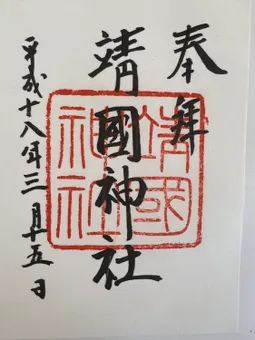 奉拝
靖國神社
平成十八年三月十五日
靖國
神社